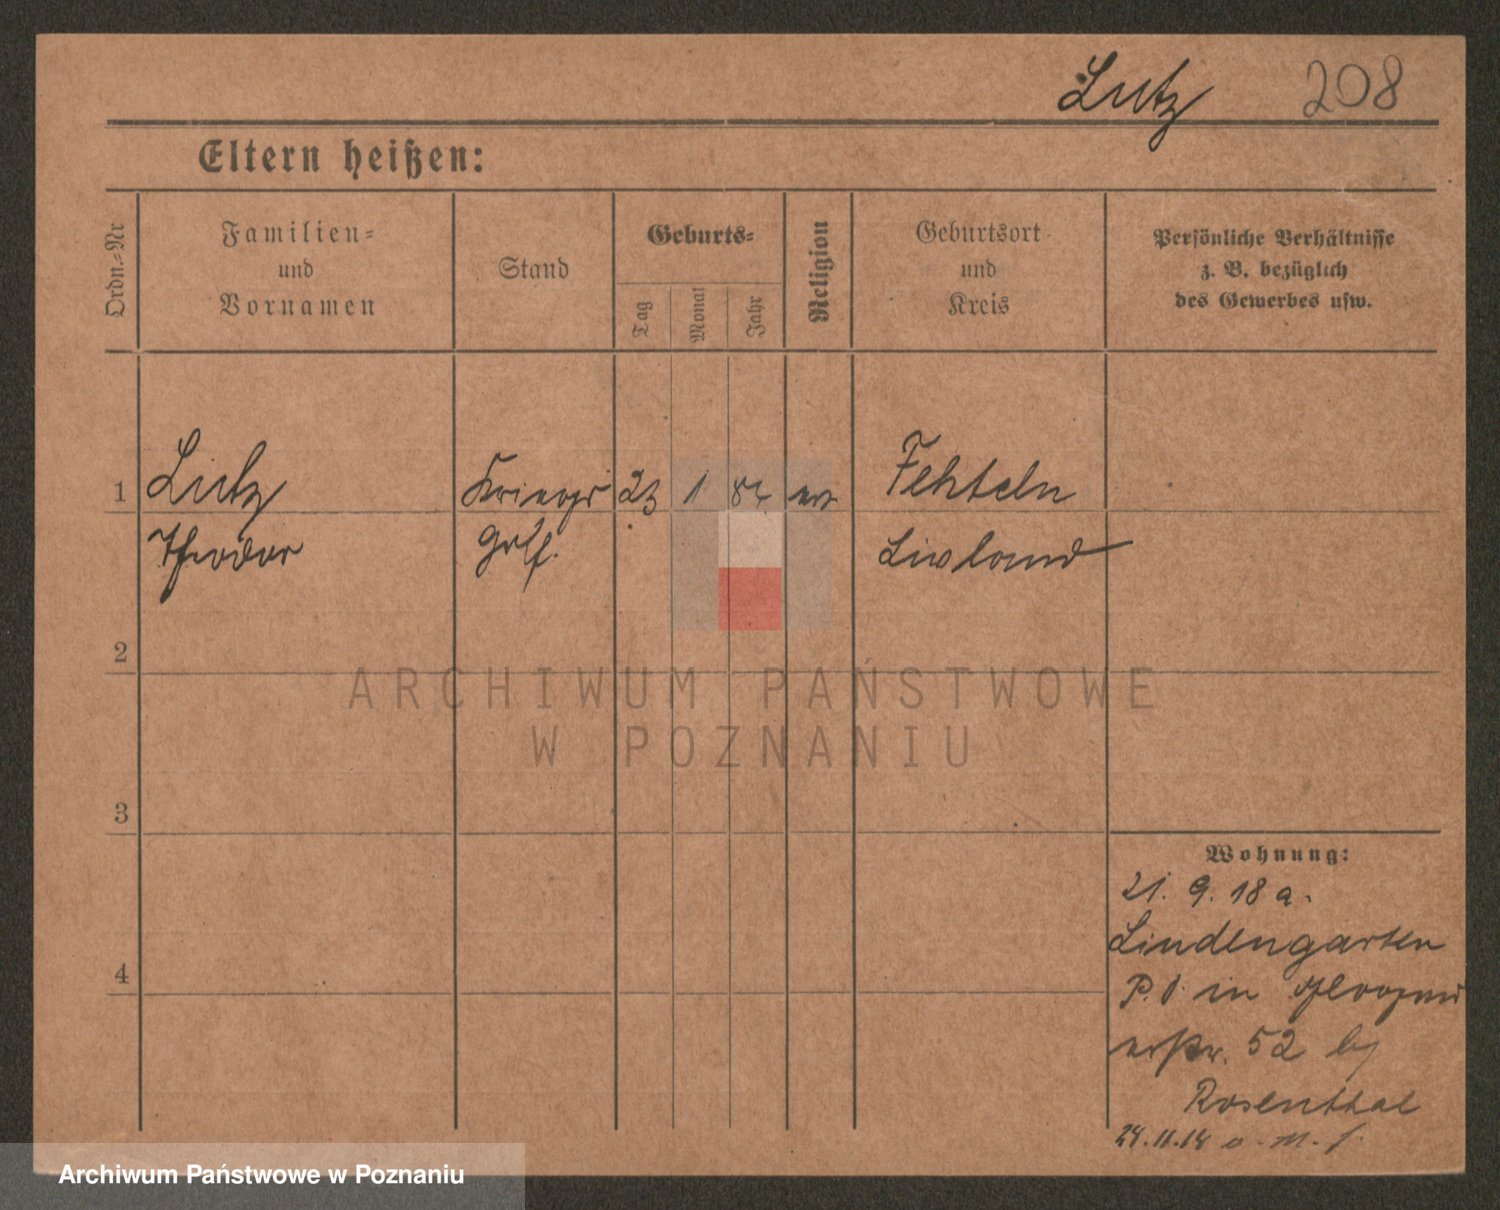 Lutz 208
Eltern heißen:
Ordn.-Nr
Familien-
und
Vornamen
Stand
Geburts-
Tag
Monat
Jahr
Religion
Geburtsort
und
Kreis
Persönliche Verhältnisse
z. B. bezüglich
des Gewerbes usw.
1 Lutz 23 1 Fehteln
Theodor Livland
2
3
4
Wohnung:
21. 9. 18 a.
Lindengarten
P. 1. in
52 bj
Rosenthal
24.11.18
ARCHIWUM PAŃSTWOWE
W POZNANIU
Archiwum Państwowe w Poznaniu